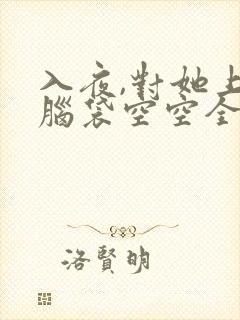 入夜,對她上
腦袋空空全
洛賢明